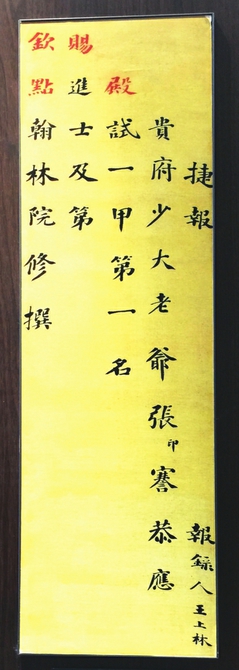 捷報 報錄人王上林
貴府少大老爺張印謇恭應
殿試一甲第一名
賜進士及第
欽點翰林院修撰